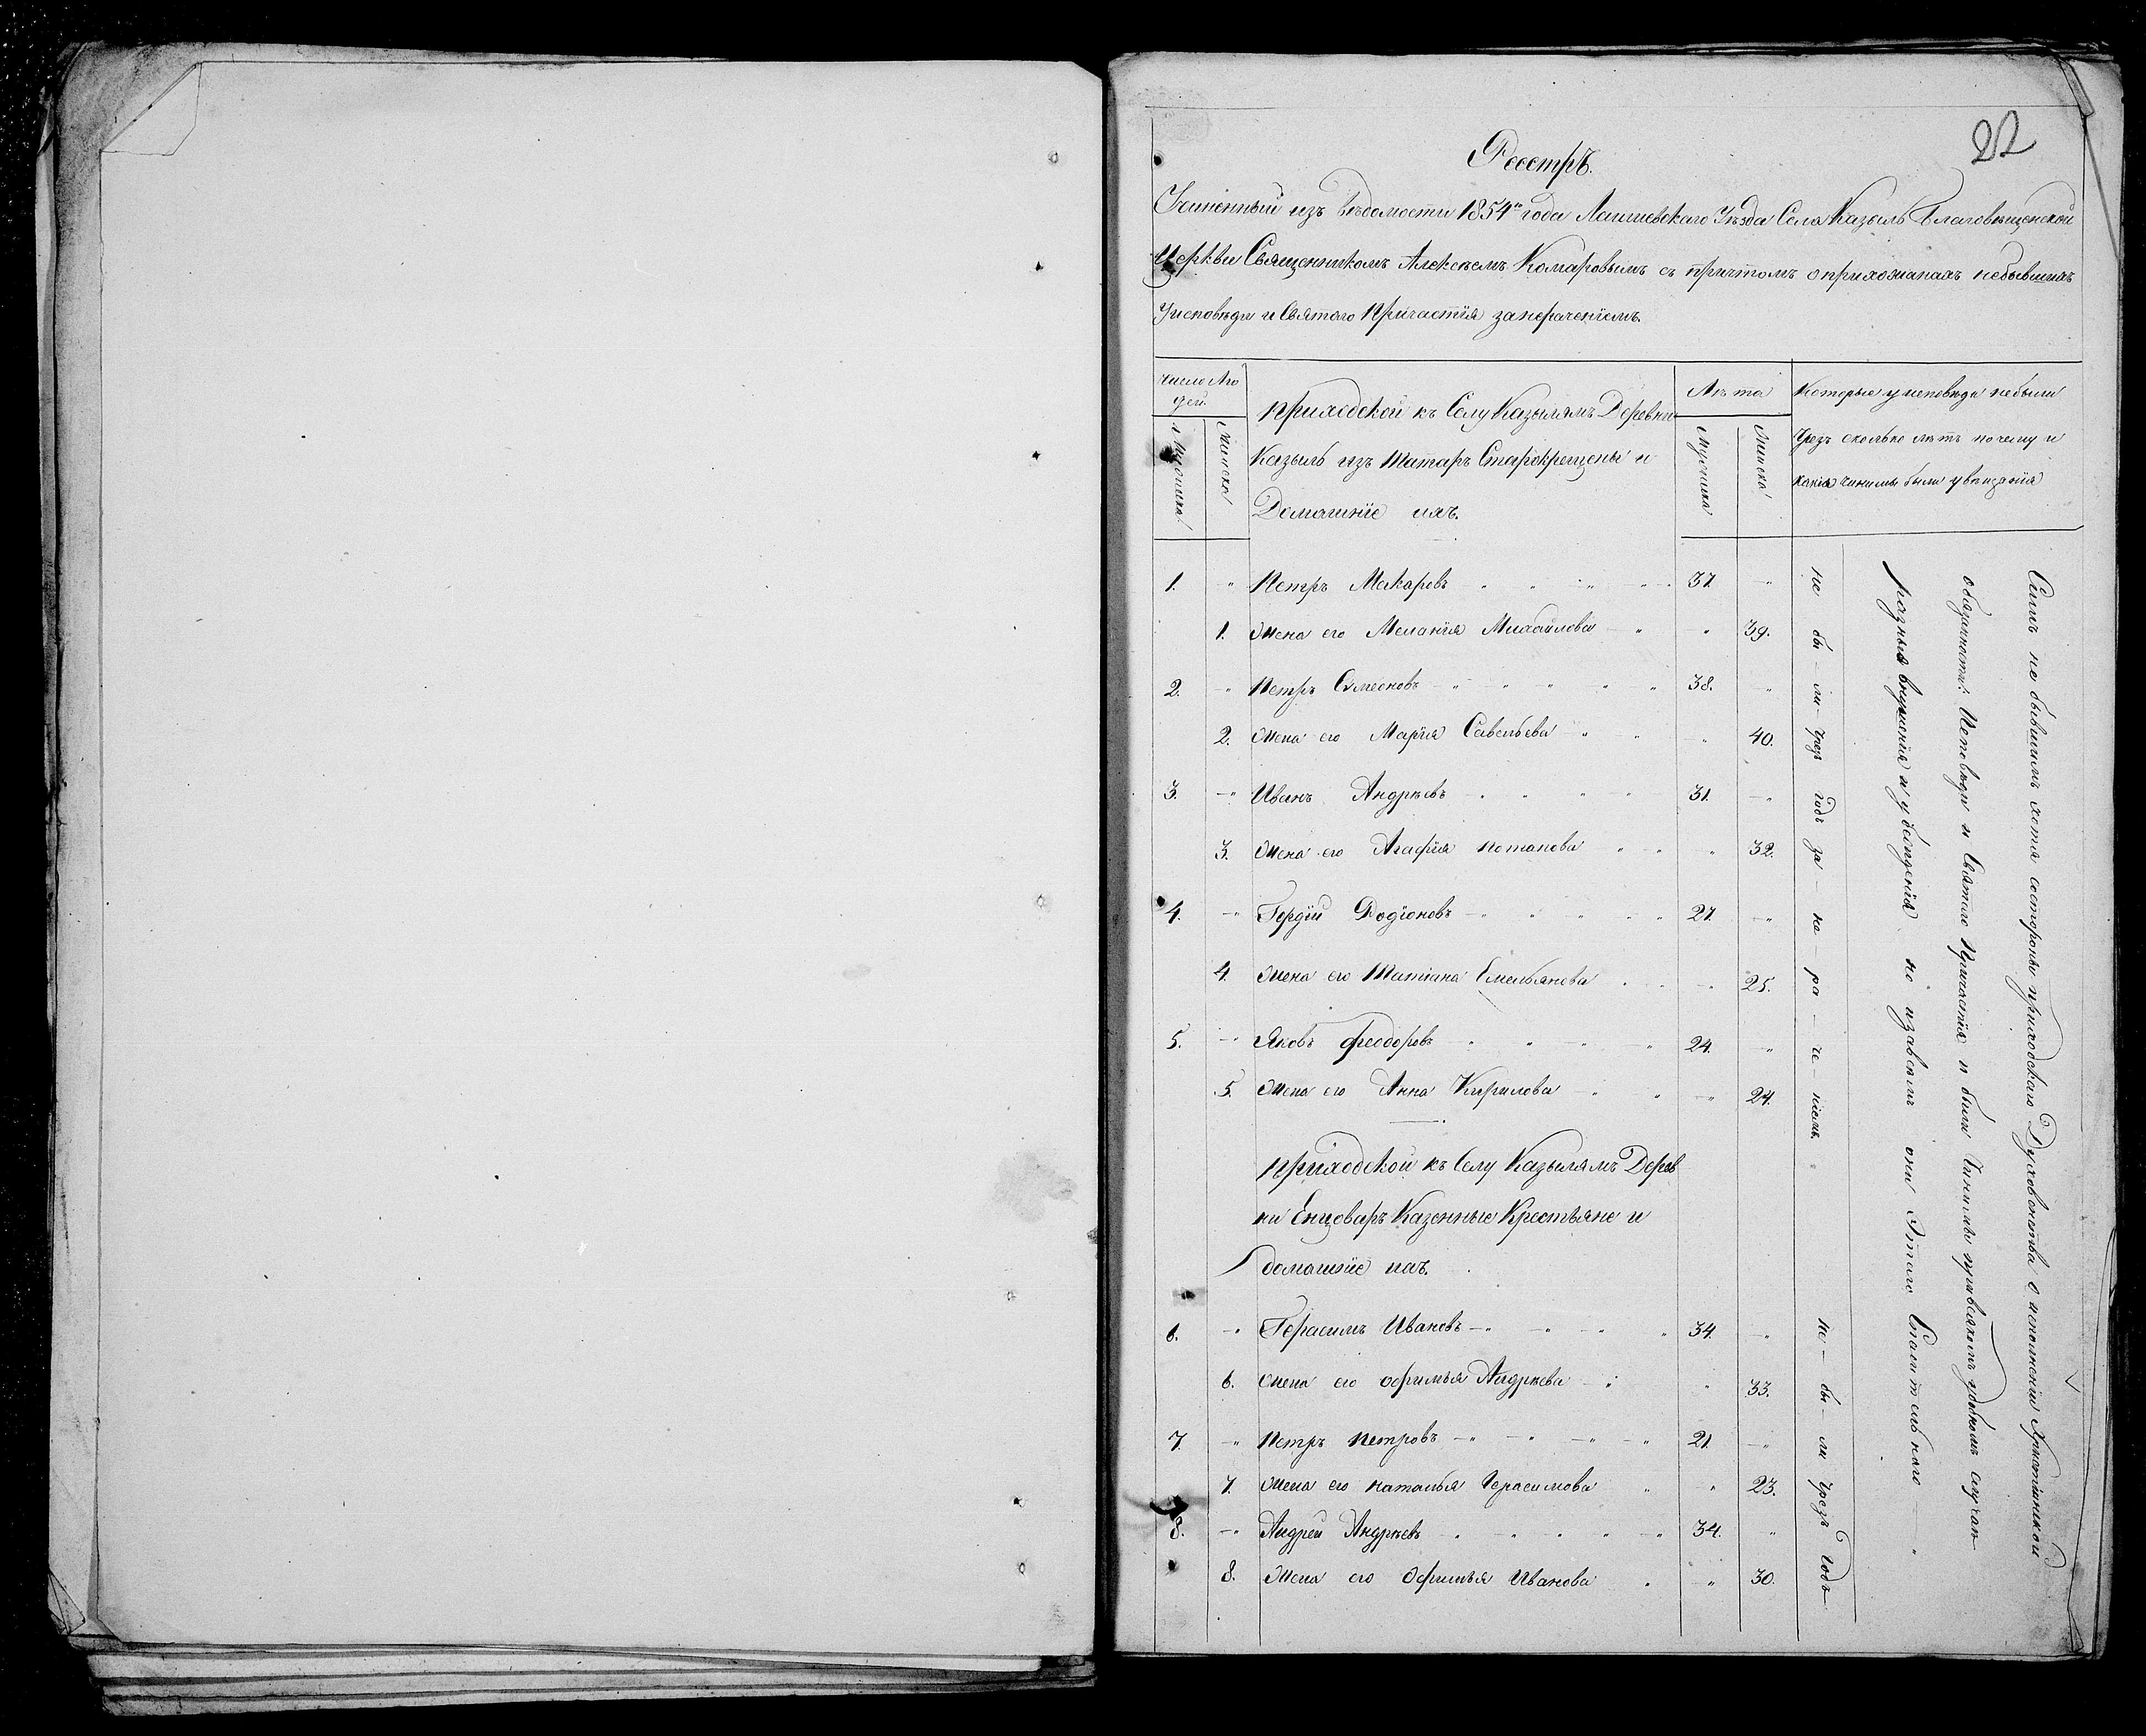 22
Реестръ.
Учиненный изъ вѣдомости 1854го года Лаишевскаго Уѣзда Села Казыль Благовѣщенской
Церкви Священникомъ Алексѣемъ Комаровымъ съ причтомъ о прихожанахъ небывшихъ
Уисповѣди и Святаго Причастія занераченіемъ.
Число Лю
дей.
Мужеска
Женска
Приходской къ Селу Казылямъ Деревни
Казыль изъ Татаръ Старокрещены и
Домашніе ихъ.
Лѣта
Мужеска
Женска
Которые уисповѣди небыли
Чрезъ сколько лѣтъ почему и
какія чинимы были увѣщанія
1. " Петръ Макаровъ 37. "
1. Жена его Меланія Михайлова " 39.
2. " Петръ Симеоновъ 38. "
2. Жена его Марія Савельева " 40.
3. " Иванъ Андрѣевъ 31. "
3. Жена его Агафія Потапова " 32.
4. " Гордій Родіоновъ 27. "
4. Жена его Татіана Емельянова " 25.
5. " Яковъ Феодоровъ 24. "
5. Жена его Анна Кирилова " 24.
Приходской къ Селу Казылямъ Дерев
ни Енцоваръ Казенные Крестьяне и
домашніе ихъ.
6. " Герасимъ Ивановъ 34. "
6. Жена его Офимья Андрѣева " 33.
7. " Петръ Петровъ 21. "
7. Жена его Наталья Герасимова " 23.
8. " Андрей Андрѣевъ 34. "
8. Жена его Офимья Иванова " 30.
не бы - ли - чрезъ годъ за - не - ра - че - ніемъ.
не - бы - ли чрезъ годъ
Симъ не бывшимъ хотя состороны приходскаго Духовенства о исполненіи Христіанской
обязанности: Исповѣди и Святаго Причастія и были Чинимы привсякомъ удобномъ случаѣ
разныя внушенія и убѣжденія, но
они Этаго Спасительнаго